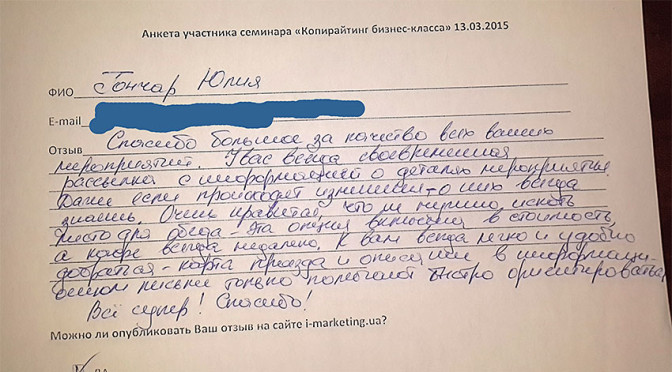 Анкета участника семинара «Копирайтинг бизнес-класса» 13.03.2015
ФИО Гончар Юлия
E-mail
Отзыв Спасибо большое за качество всех ваших
мероприятий. У вас всегда своевременная
рассылка с информацией о деталях мероприятия.
Даже если происходят изменения - о них всегда
знаешь. Очень нравится, что не нужно искать
место для обеда - эта опция включена в стоимость,
а кафе всегда недалеко. К вам всегда легко и удобно
добраться - карта проезда и описание в информаци-
онном письме только помогают быстро ориентироваться.
Всё супер! Спасибо!
Можно ли опубликовать Ваш отзыв на сайте i-marketing.ua?